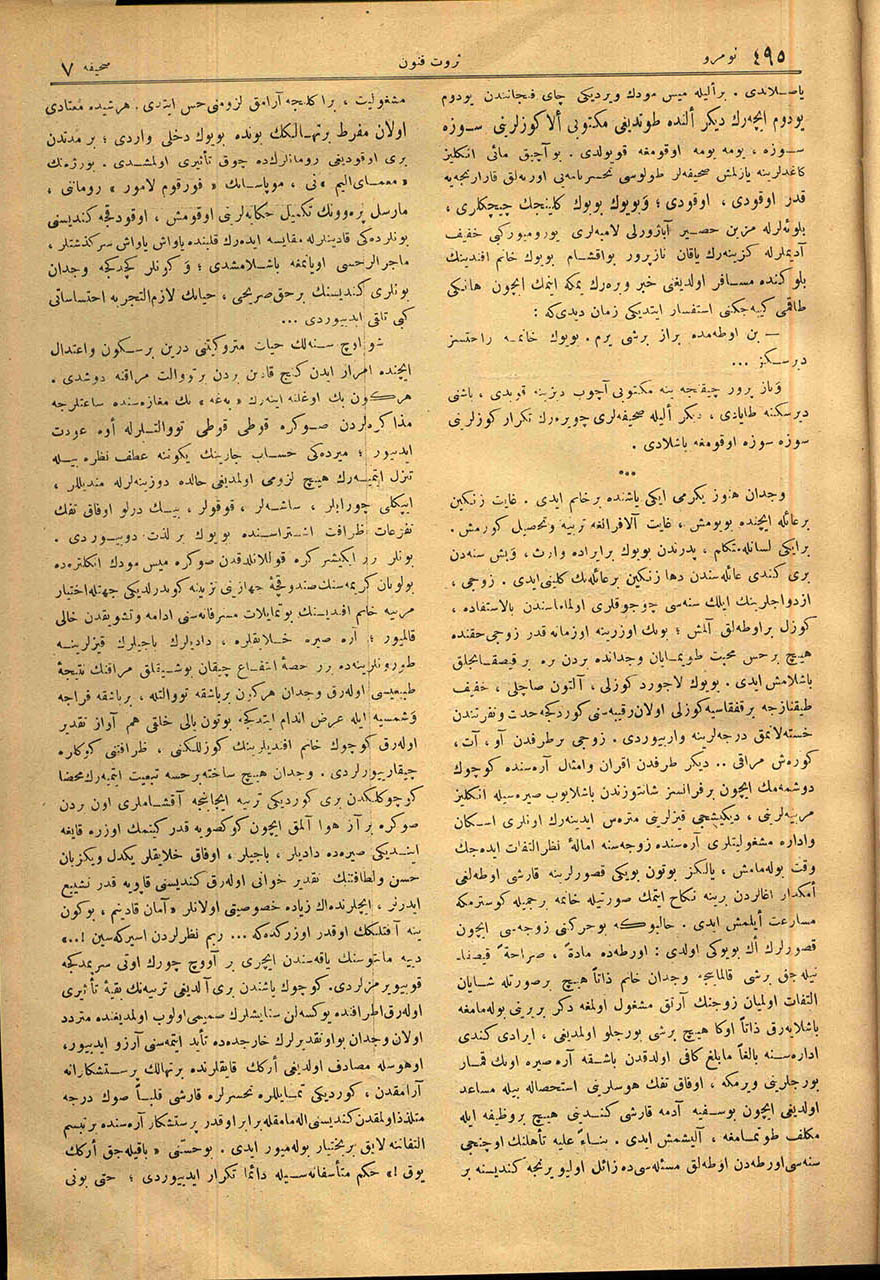 ٤٩٥ نومرو
ثروت فنون
صحیفه ٧
یاصلاندی . بر أليله میس مودك ویردیکی چای فنجانندن یودوم
یودوم ایچه‌رك دیکر ألنده طوتدیغی مکتوبی ألا کوزلرینی سوزه
سوزه ، بومه بومه اوقومغه قویولدی . بو آچیق مائی انکلیز
کاغدلرینه یازلمش صحیفه‌لر طولوسی تحسرنامه‌یی اورته‌لق قارارنجه‌یه
قدر اوقودی ، اوقودی ؛ وَ بویوك بویوك کلینجك چیچکلری ،
بلوئه‌لرله مزین حصیر آباژورلی لامبه‌لری یورومیورکبی خفیف
آدیملرله کزینه‌رك یاقان نازپرور بواقشام بویوك خانم افندینك
بلوکنده مسافر اولدیغنی خبر ویره‌رك یمکه اینمك ایچون هانکی
طاقمی کییه‌جکنی استفسار ایتدیکی زمان دیدی که :
— بن اوطه‌مده براز برشی یرم . بویوك خانمه راحتسز
دیرسکز ...
وَ ناز پرور چیقنجه ینه مکتوبی آچوب دیزینه قویدی ، باشنی
دیرسکنه طایادی ، دیکر أليله صحیفه‌لری چویره‌رك تکرار کوزلرینی
سوزه سوزه اوقومغه باشلادی .
***
وجدان هنوز یکرمی ایکی یاشنده برخانم ایدی . غایت زنکین
برعائله ایچنده بویومش ، غایت آلافرانغه تربیه وتحصیل کورمش .
برایکی لسانله متکلم ، پدرندن بویوك برایراده وارث ، وَ بش سنه‌دن
بری کندی عائله‌سندن دها زنکین برعائله‌نك کلینی ایدی . زوجی ،
ازدواجلرینك ایلك سنه‌سی چوجوقلری اولماماسندن بالاستفاده ،
کوزل براوطه‌لق آلمش ؛ بونك اوزرینه اوزمانه قدر زوجی حقنده
هیچ برحس محبت طویمایان وجدانده بردن بره برقیصقانجلق
باشلامش ایدی . بویوك لاجورد کوزلی ، آلتون صاچلی ، خفیف
طیقنازجه برقفقاسیه کوزلی اولان رقیبه‌سنی کوردکجه حدت ونفرتندن
خسته‌لانمق درجه‌لرینه واریوردی . زوجی برطرفدن آو ، آت ،
کوره‌ش مراقی .. دیکر طرفدن اقران وامثال آره‌سنده کوچوك
دوشمه‌مك ایچون برفرانسز شانتوزندن باشلایوب صیره‌سیله انکلیز
مربیه‌لرینی ، دیکیشجی قیزلرینی متره‌س ایدینه‌رك اونلری اسکان
واداره مشغولیتلری آره‌سنده زوجه‌سنه اماله‌ٔ نظر التفات ایده‌جك
وقت بوله‌مامش ، یالکز بوتون بویکی قصورلرینه قارشی اوطه‌لغی
أمکدار اغالردن برینه نکاح ایتمك صورتیله خانمه رجمیله کوسترمکه
مسارعت أیلمش ایدی . حالبوکه بوحرکتی زوجه‌سی ایچون
قصورلرك أك بویوکی اولدی : اورطه‌ده مادةً ، صراحةً قیصقا-
نیله‌جق برشی قالماینجه وجدان خانم ذاتاً هیچ برصورتله شایان
التفات اولمیان زوجنك آرتق مشغول اولمغه دکر بریرینی بوله‌مامغه
باشلایه‌رق ذاتاً اوکا هیچ برشی بورجلو اولمدیغی ، ایرادی کندی
اداره‌سنه بالغاً مابلغ کافی اولدقدن باشقه آره‌صیره اونك قمار
بورجلرینی ویرمکه ، اوفاق تفك هوسلرینی استحصاله بیله مساعد
اولدیغی ایچون بوسفیه آدمه قارشی کندینی هیچ بروظیفه ایله
مکلف طوتمامغه ، آلیشمش ایدی . بناءً علیه تأهلنك اوچنجی
سنه‌سی اورطه‌دن اوطه‌لق مسئله‌سی‌ده زائل اولیویرنجه کندیسنه بر
مشغولیت ، بر اکلنجه آرامق لزومنی حس ایتدی . هر شیده معتادی
اولان مفرط برتهالكك بونده بویوك دخلی واردی ؛ بر مدتدن
بری اوقودیغی رومانلرك‌ده چوق تأثیری اولمشدی . بورژه‌نك
« معمای الیم » نی ، موپاسانك « فورقوم لامور » رومانی ،
مارسل پره‌وونك تکمیل حکایه‌لرینی اوقومش ، اوقودقجه کندیسنی
بونلرده‌کی قادینلرله مقایسه ایده‌رك قلبنده یاواش یاواش سرکذشتلر ،
ماجرالر حسی اویانمغه باشلامشدی ؛ وَ کونلر کچدکجه وجدان
بونلری کندیسنك برحق صریحی ، حیاتك لازم‌التجربه احتساساتی
کبی تلقی ایدیوردی ...
شو اوچ سنه‌لك حیات متروکیتنی درین برسکون واعتدال
ایچنده امرار ایدن کنج قادین بردن برتووالت مراقنه دوشدی .
هرکون بك اوغلنه اینه‌رك « بغه » نك مغازه‌سنده ساعتلرجه
مذاکره‌لردن صوکره قوطی قوطی تووالتلرله أوه عودت
ایدییور ؛ میرده‌کی حساب جارینك یکوننه عطف نظره بیله
تنزل ایتمیه‌رك هیچ لزومی اولمدیغی حالده دوزینه‌لرله مندیللر ،
ایپکلی چورابلر ، ساشه‌لر ، قوقولر ، بیك درلو اوفاق تفك
تفرعات ظرافت اشتراسنده بویوك بر لذت دویییوردی .
بونلر برر ایکیشر کره قوللانلدقدن صوکره میس مودك انکلتره‌ده
بولونان کریمه‌سنك صندوقجه‌ٔ جهازینی تزیینه کوندرلدیکی جهتله اختیار
مربیه خانم افندیسنك بوتمایلات مسرفانه‌سنی ادامه وتشویقدن خالی
قالمیور ؛ آره صیره خلایقلره ، دادیلرك باجیلرك قیزلرینه
طورونلرینه‌ده برر حصه‌ٔ انتفاع چیقان بوشیقلق مراقنك نتیجه‌ٔ
طبیعیسی اوله‌رق وجدان هرکون برباشقه تووالتله ، برباشقه فراجه
وَ شمسیه ایله عرض اندام ایتدکجه بوتون یالی خلقی هم آواز تقدیر
اوله‌رق کوچوك خانم افندیلرینك کوزللکنی ، ظرافتنی کوکلره
چیقارییورلردی . وجدان هیچ ساخته برحسه تبعیت ایتمیه‌رك محضا
کوچوکلکدن بری کوردیکی تربیه ایجابنجه آقشاملری اون بردن
صوکره برآز هوا آلمق ایچون کوکصویه قدر کیتمك اوزره قایغه
ایندیکی صیره‌ده دادیلر ، باجیلر ، اوفاق خلایقلر یکدل ویکزبان
حسن ولطافتنك تقدیر خوانی اوله‌رق کندیسنی قاپویه قدر تشییع
ایدرلر ، ایچلرنده‌اك زیاده خصوصیتی اولانلر « آمان قادینم ، بوکون
ینه آفتلکك اوقدر اوزرکده‌که ... ربم نظرلردن اسیرکه‌سین !.. »
دییه مانتوسنك یاقه‌سندن ایچری بر آووچ چورك اوتی سرپمدکجه
قوییویرمزلردی . کوچوك یاشندن بری آلدیغی تربیه‌نك بقیه‌ٔ تأثیری
اوله‌رق اطرافنده یوکسه‌لن ستایشلرك صمیمی اولوب اولمدیغنده متردد
اولان وجدان بواونقدیرلرك خارجده‌ده تأید ایتمه‌سنی آرزو ایدییور ،
اوهوسله مصادف اولدیغی أرکك قایقلرنده برتهالك پرستشکارانه
آرامقدن ، کوردیکی تمایللره تحسرلره قارشی قلباً صوك درجه
متلذذ اولمقدن کندیسنی اله‌مامقله برابر اوقدر پرستشکار آره‌سنده برتبسم
التفاتنه لایق بربختیار بوله‌میور ایدی . بوحسنی « باقیله‌جق أرکك
یوق !» حکم متأسفانه‌سیله دائما تکرار ایدییوردی ؛ حتی بونی